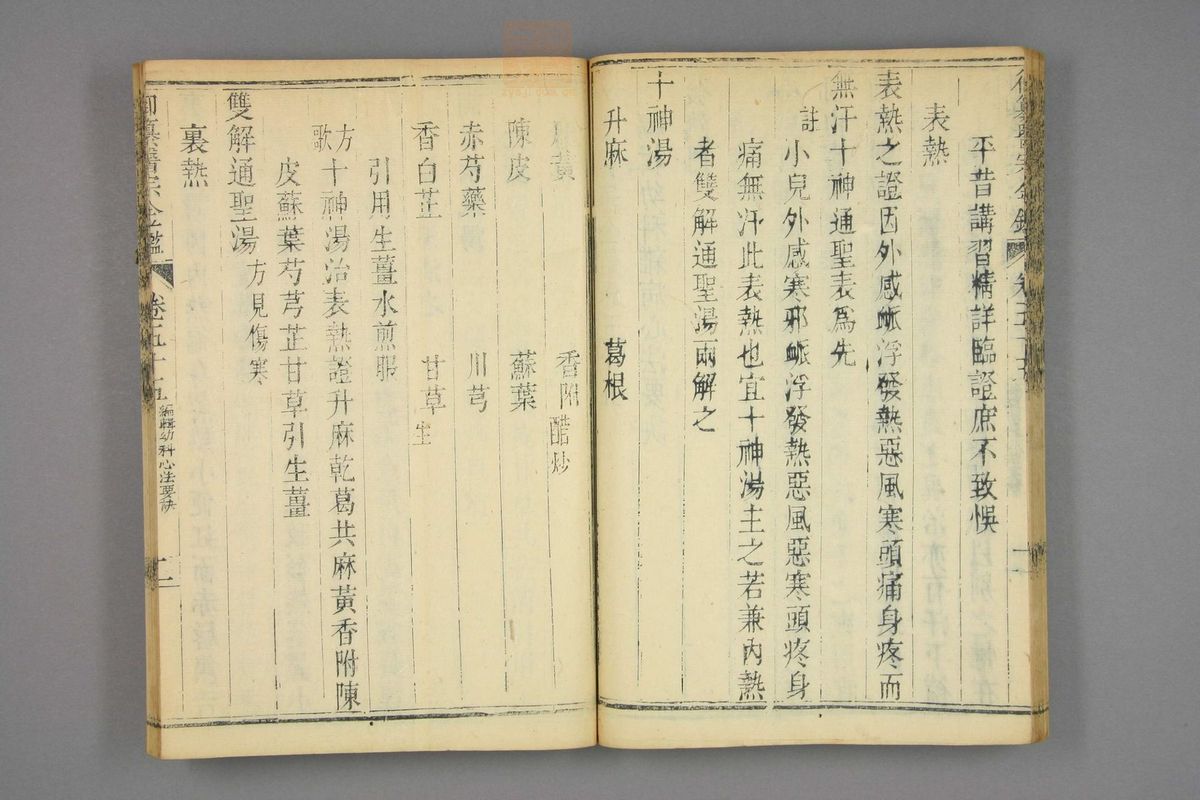 平昔講習精詳臨證庶不致悞
表熱
表熱之證因外感脈浮發熱惡風寒頭痛身疼而
無汗十神通聖表爲先
註
小兒外感寒邪脈浮發熱惡風惡寒頭疼身
痛無汗此表熱也宜十神湯主之若兼內熱
者雙解通聖湯兩解之
十神湯
升麻 葛根
麻黃 香附醋炒
陳皮 蘇葉
赤芍藥 川芎
香白芷 甘草生
引用生薑水煎服
方歌 十神湯治表熱證升麻乾葛共麻黃香附陳
皮蘇葉芍芎芷甘草引生薑
雙解通聖湯 方見傷寒
裏熱
御纂醫宗金鑑 卷五十五 編輯幼科心法要訣